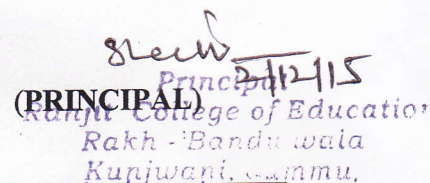 2/12/15
Principal
(PRINCIPAL)
Ranjit College of Education
Rakh - Bandu wala
Kunjwani, Jammu,